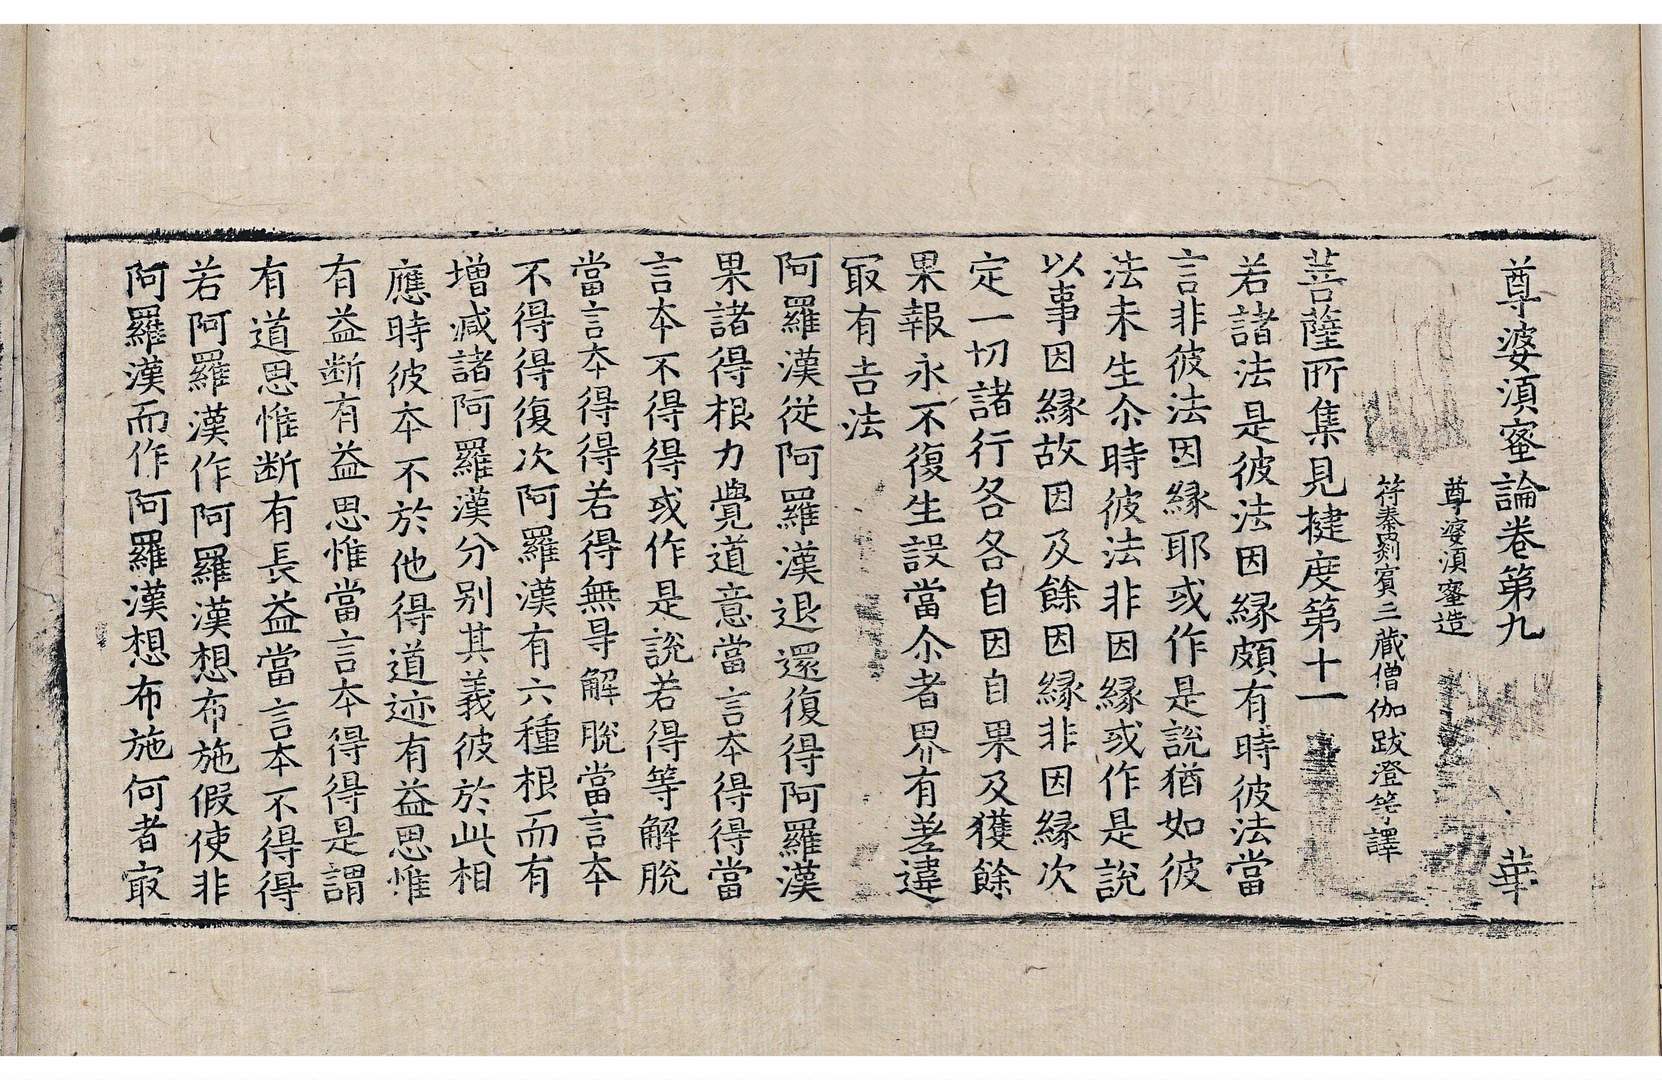 尊婆湏蜜論卷第九 華
尊婆湏蜜造
符秦罽賓三藏僧伽跋澄等譯
菩薩所集見揵度第十一
若諸法是彼法因縁頗有時彼法當
言非彼法因縁耶或作是說猶如彼
法未生尒時彼法非因縁或作是說
以事因縁故因及餘因縁非因縁次
定一切諸行各各自因自果及獲餘
果報永不復生設當尒者界有差違
冣有吉法
阿羅漢從阿羅漢退還復得阿羅漢
果諸得根力覺道意當言夲得得當
言夲不得得或作是說若得等解脫
當言夲得得若得無㝵解脫當言夲
不得得復次阿羅漢有六種根而有
增减諸阿羅漢分别其義彼於此相
應時彼夲不於他得道迹有益思惟
有益断有益思惟當言夲得得是謂
有道思惟断有長益當言夲不得得
若阿羅漢作阿羅漢想布施假使非
阿羅漢而作阿羅漢想布施何者冣